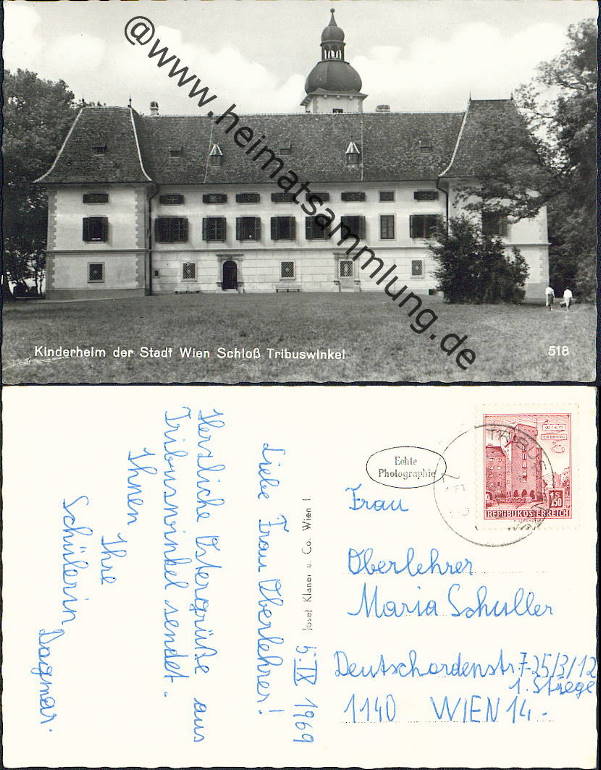 @www.heimatsammlung.de
Kinderheim der Stadt Wien Schloß Tribuswinkel
518
Echte
Photographie
REPUBLIK ÖSTERREICH
Josef Klaner u. Co. Wien I
5 IX 1969
Liebe Frau Oberlehrer!
Herzliche Ostergrüße aus
Tribuswinkel sendet
Ihnen
Ihre
Schülerin
Dagmar.
Frau
Oberlehrer
Maria Schuller
Deutschordenstr. 7-25/3/12
1. Stiege
1140 WIEN 14 -